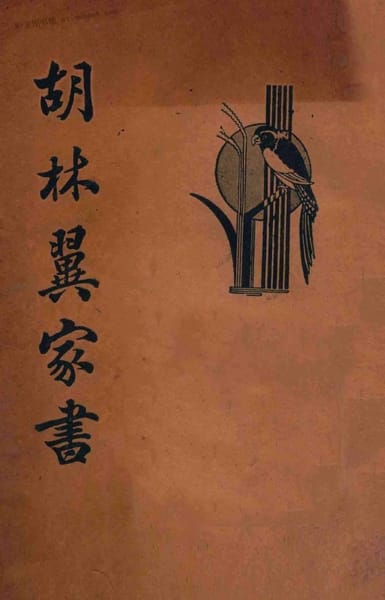 胡林翼家書